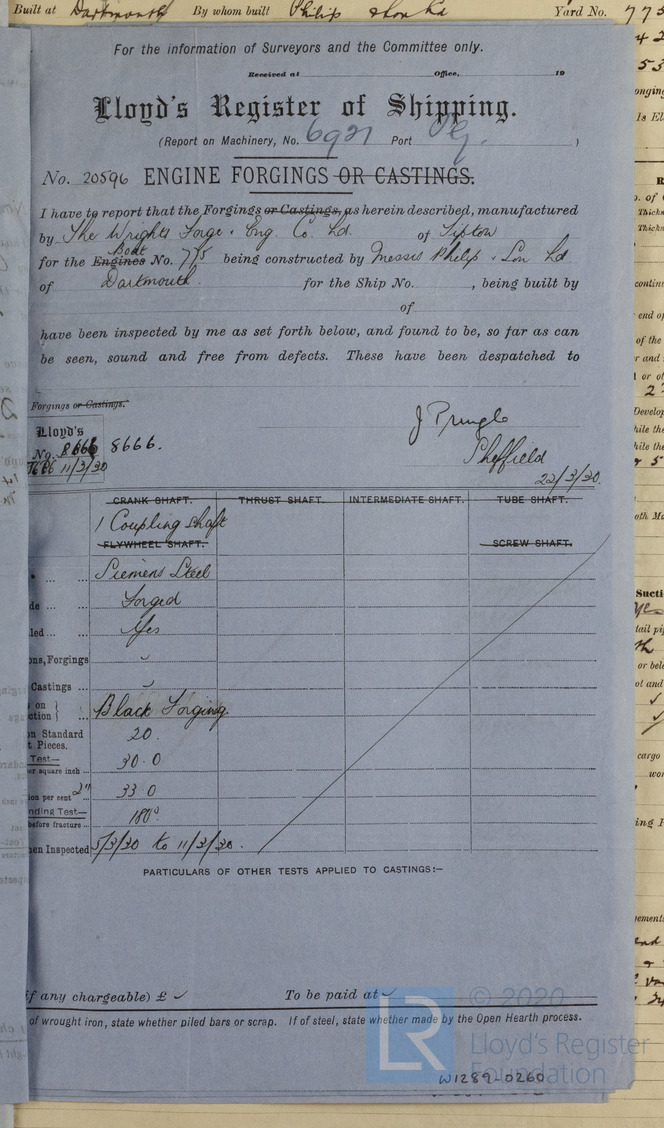 Built at Dartmouth By whom built Philip & Son Ld Yard No. 775
For the information of Surveyors and the Committee only.
Received at Office, 19
Lloyd's Register of Shipping.
(Report on Machinery, No. 6921 Port )
No. 20596 ENGINE FORGINGS OR CASTINGS.
I have to report that the Forgings or Castings, as herein described, manufactured
by The Wrights Forge & Eng. Co. Ld. of Tipton
Boat
for the Engines No. 775 being constructed by Messrs Philip & Son Ld
of Dartmouth. for the Ship No. , being built by
of
have been inspected by me as set forth below, and found to be, so far as can
be seen, sound and free from defects. These have been despatched to
Forgings or Castings.
Lloyd's
No. 8666 8666.
11/3/30
J Pringle
Sheffield
22/3/30.
CRANK SHAFT. THRUST SHAFT. INTERMEDIATE SHAFT. TUBE SHAFT.
1 Coupling Shaft
FLYWHEEL SHAFT. SCREW SHAFT.
Siemens Steel
Forged
Yes
Forgings
Castings
Black Forging.
Standard
Pieces. 20.
Test—
square inch 30.0
per cent 2" 33.0
Test—
before fracture 180°
Inspected 5/3/30 to 11/3/30.
PARTICULARS OF OTHER TESTS APPLIED TO CASTINGS:—
if any chargeable) £ ✓ To be paid at ✓
of wrought iron, state whether piled bars or scrap. If of steel, state whether made by the Open Hearth process.
LR © 2020
Lloyd's Register
Foundation
W1289-0260